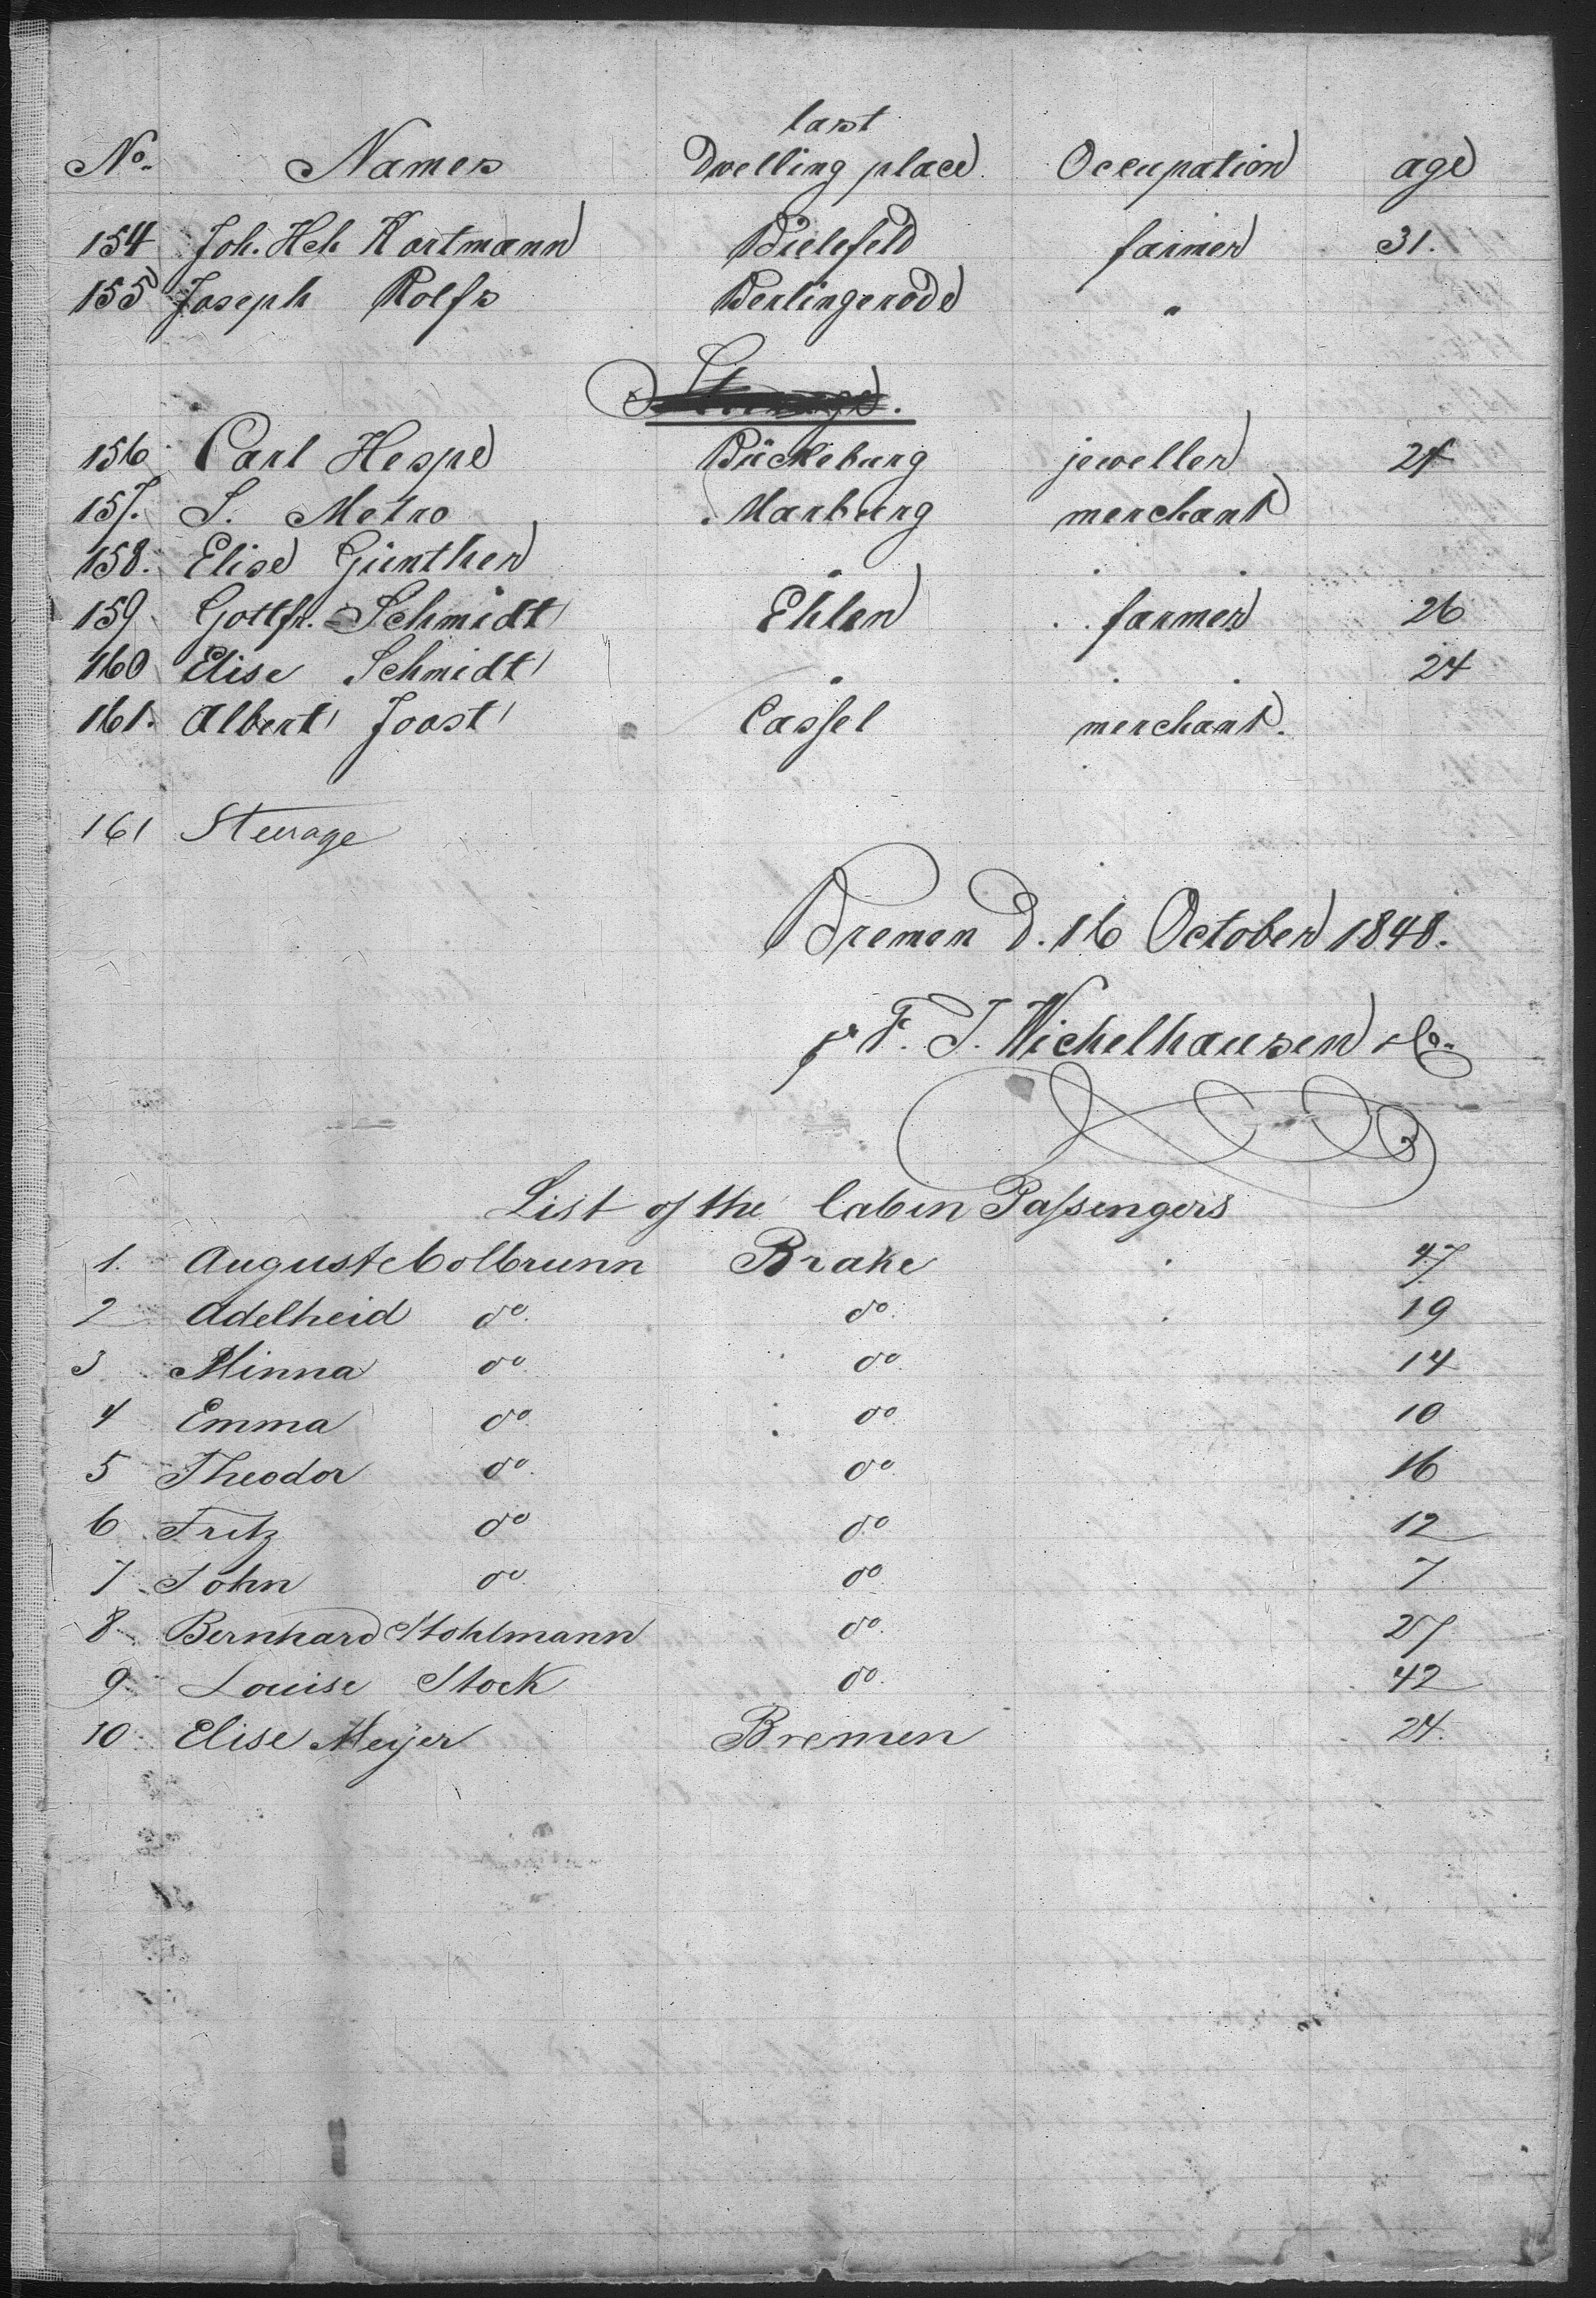 last
No. Names Dwelling place Occupation age
154 Joh. Hch Kortmann Bielefeld farmer 31.
155 Joseph Rolfs Berlingerode "
156 Carl Hespe Bückeburg jeweller 24
157. S. Metro Marburg merchant
158. Elise Günther " . .
159. Gottfr. Schmidt Ehlen farmer 26
160 Elise Schmidt " . . 24
161. Albert Joost Cassel merchant.
161 Steerage
Bremen d. 16 October 1848.
pr F. J. Wichelhausen & Co.
List of the Cabin Passengers
1. Auguste Colbrunn Brake 47
2 Adelheid do. do. 19
3 Minna do do. 14
4 Emma do. do. 10
5 Theodor do. do. 16
6 Fritz do do 12
7 John do. do 7
8 Bernhard Stohlmann do. 27
9 Louise Stock do. 42
10 Elise Meyer Bremen 24.